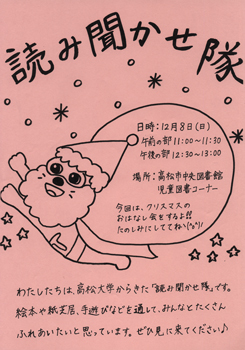 読み聞かせ隊
日時：12月8日(日)
午前の部 11:00〜11:30
午後の部 12:30〜13:00
場所：高松市中央図書館
児童図書コーナー
今回は、クリスマスの
おはなし会をするよ!!
たのしみにしててね＼(^o^)/
わたしたちは、高松大学からきた「読み聞かせ隊」です。
絵本や紙芝居、手遊びなどを通して、みんなとたくさん
ふれあいたいと思っています。ぜひ見に来てください♪